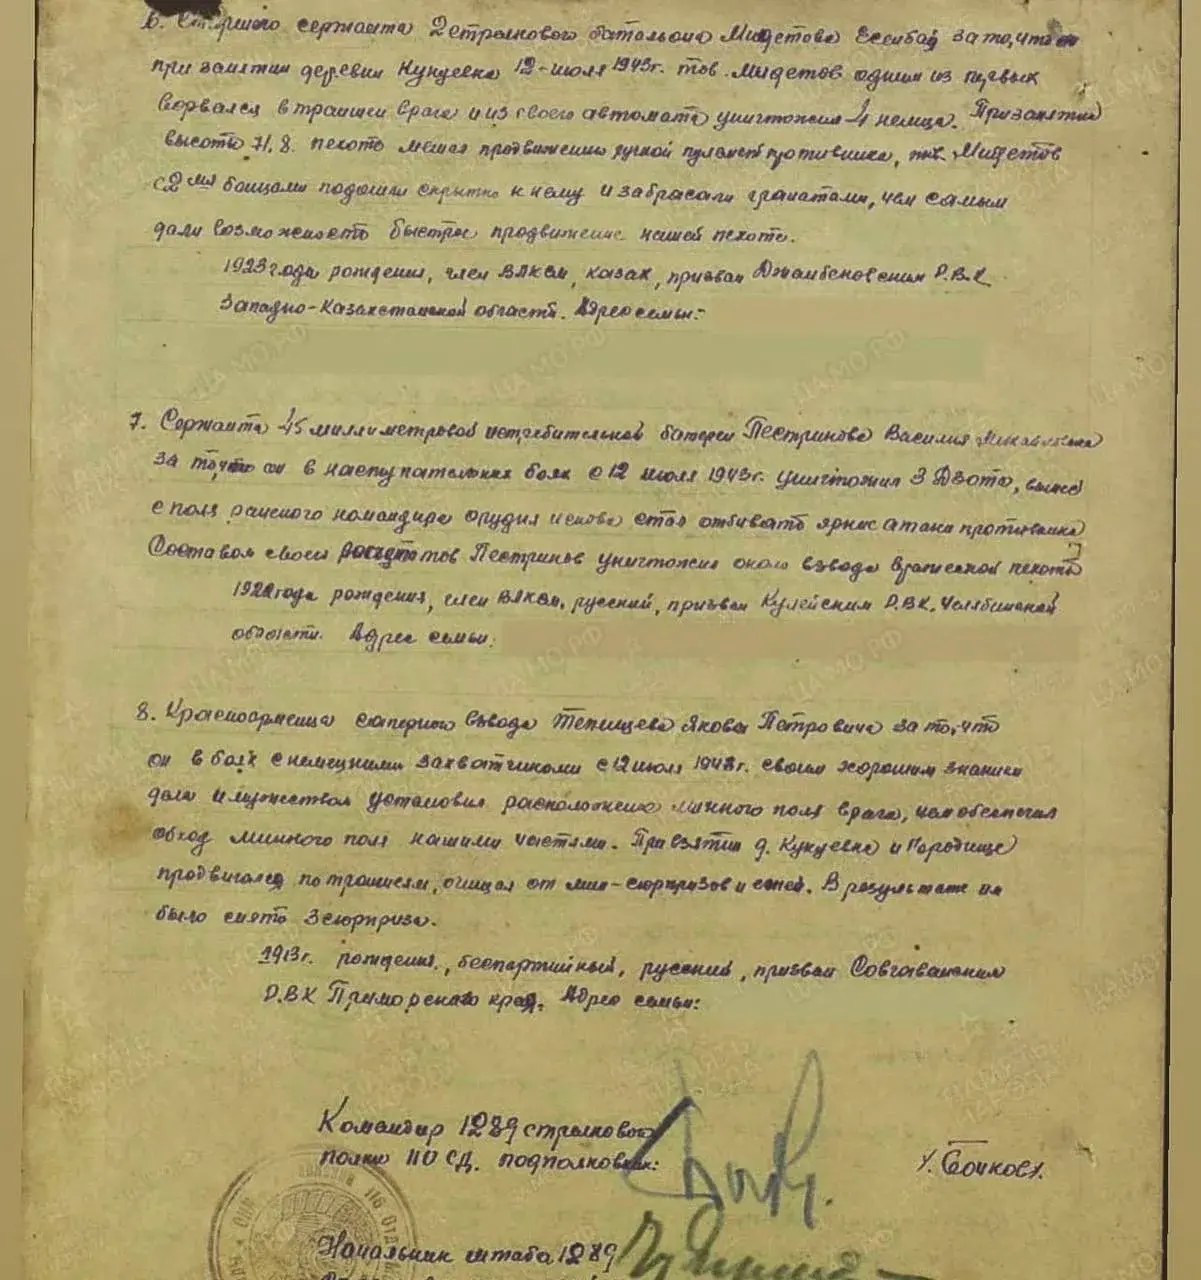 6. Старшего сержанта 2 стрелкового батальона Мидетова Есенбай за то, что он
при занятии деревни Кукуевка 12-июля 1943г. тов. Мидетов одним из первых
ворвался в траншеи врага и из своего автомата уничтожил 4 немца. При занятии
высоты 71.8. пехоте мешал продвижению ручной пулемет противника, тов. Мидетов
с 2 мя бойцами подошли скрытно к нему и забрасали гранатами, чем самым
дали возможность быстрое продвижение нашей пехоте.
1923 года рождения, член ВЛКСМ, казах, призван Джамбейтовским Р.В.К.
Западно-Казахстанской области. Адрес семьи:
7. Сержанта 45 миллиметровой истребительной батареи Пестрикова Василия
за то, что он в наступательных боях с 12 июля 1943г. уничтожил 3 Дзота, вынес
с поля раненого командира орудия и снова стал отбивать ярые атаки противника
Составом своего расчета тов Пестриков уничтожил около взвода вражеской пехоты
1922 года рождения, член ВЛКСМ, русский, призван Р.В.К. Челябинской
области. Адрес семьи:
8. Красноармейца саперного взвода Тепищева Якова Петровича за то, что
он в боях с немецкими захватчиками с 12 июля 1943г. своим хорошим знанием
дела и мужеством установил расположение минного поля врага, чем обеспечил
обход минного поля нашими частями. При взятии д. Кукуевка и Городище
продвигался по траншеям, очищал от мин-сюрпризов и В результате им
было снято 3 сюрприза.
1913г. рождения, беспартийный, русский, призван Совгаванским
Р.В.К Приморского края. Адрес семьи:
Командир 1289 стрелкового
полка 110 СД. подполковник:
/. Бойков/.
Начальник штаба 1289